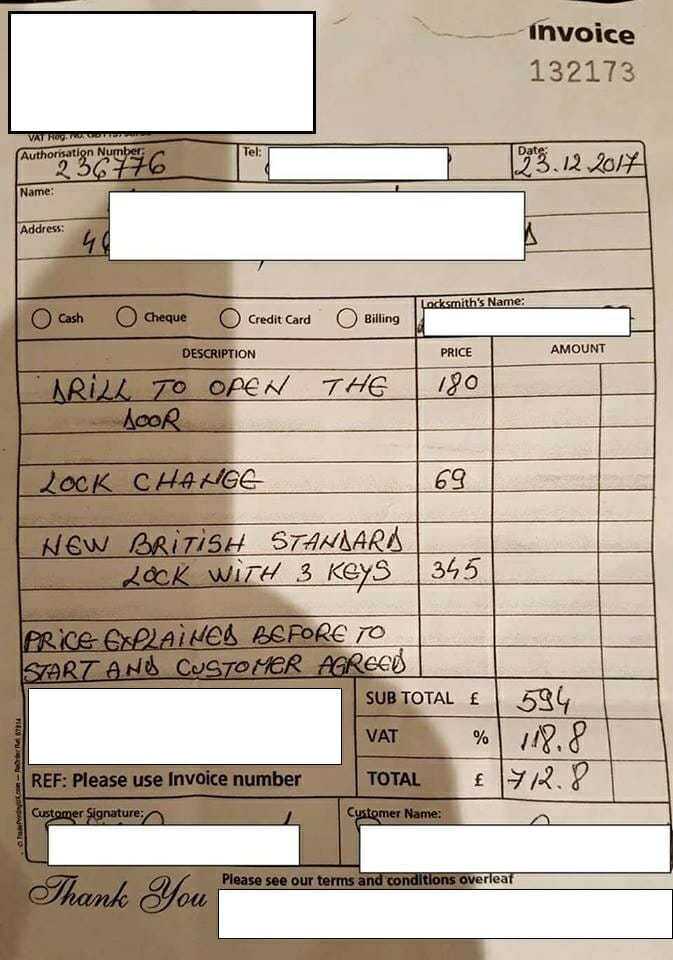 Invoice
132173
VAT Reg. No.
Authorisation Number: Tel: Date:
236776 23.12.2017
Name:
Address:
Cash Cheque Credit Card Billing Locksmith's Name:
DESCRIPTION PRICE AMOUNT
DRILL TO OPEN THE 180
DOOR
LOCK CHANGE 69
NEW BRITISH STANDARD
LOCK WITH 3 KEYS 345
PRICE EXPLAINED BEFORE TO
START AND CUSTOMER AGREED
SUB TOTAL £ 594
VAT % 118.8
REF: Please use Invoice number TOTAL £ 712.8
Customer Signature: Customer Name:
Please see our terms and conditions overleaf
Thank You